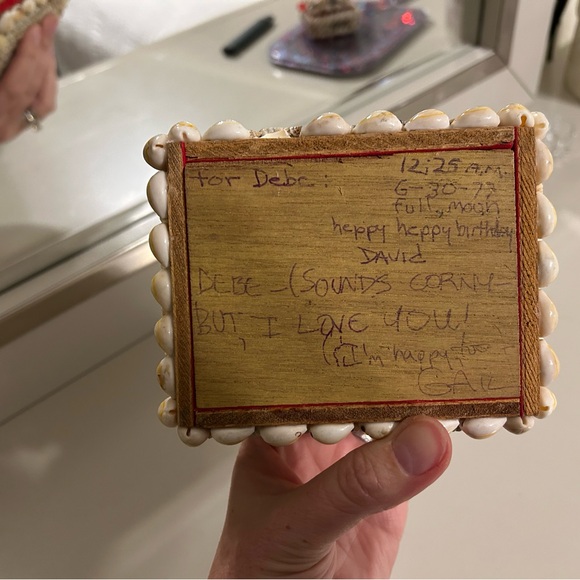 for Debe:
12:25 A.M.
6-30-77
full, moon
heppy heppy birthday
DAVID
DEBE - (SOUNDS CORNY -
BUT, I LOVE YOU!
(I'm happy too
GAIL